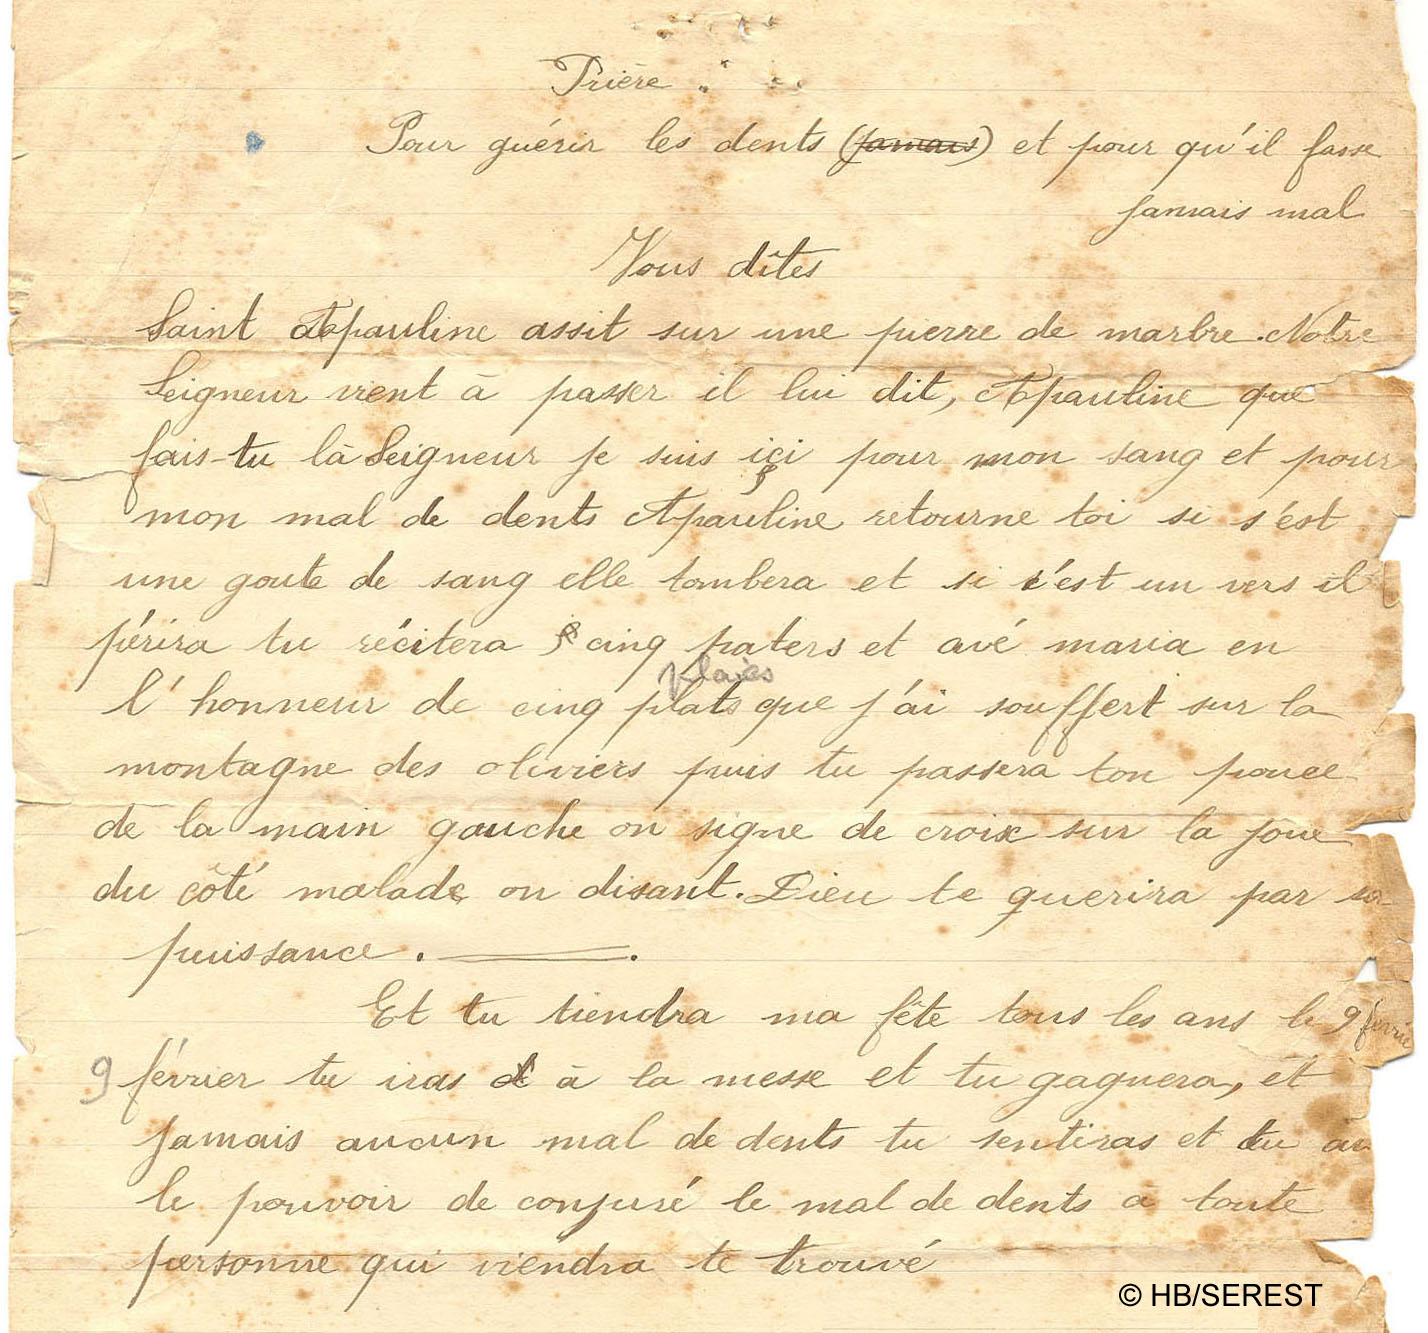 Prière.
Pour guérir les dents (jamais) et pour qu'il fasse
jamais mal
Vous dîtes
Saint Apauline assit sur une pierre de marbre. Notre
Seigneur vient à passer il lui dit, Apauline que
fais-tu là Seigneur je suis içi pour mon sang et pour
mon mal de dents Apauline retourne toi si s'est
une goute de sang elle tombera et si c'est un vers il
périra tu récitera cinq paters et avé maria en
plaies
l'honneur de cinq plats que j'ai souffert sur la
montagne des oliviers puis tu passera ton pouce
de la main gauche on signe de croix sur la joue
du côté malade on disant. Dieu te querira par sa
puissance.
Et tu tiendra ma fête tous les ans le 9 février
9 février tu iras à la messe et tu gagnera, et
jamais aucun mal de dents tu sentiras et tu
le pouvoir de conjuré le mal de dents a toute
personne qui viendra te trouvé
© HB/SEREST